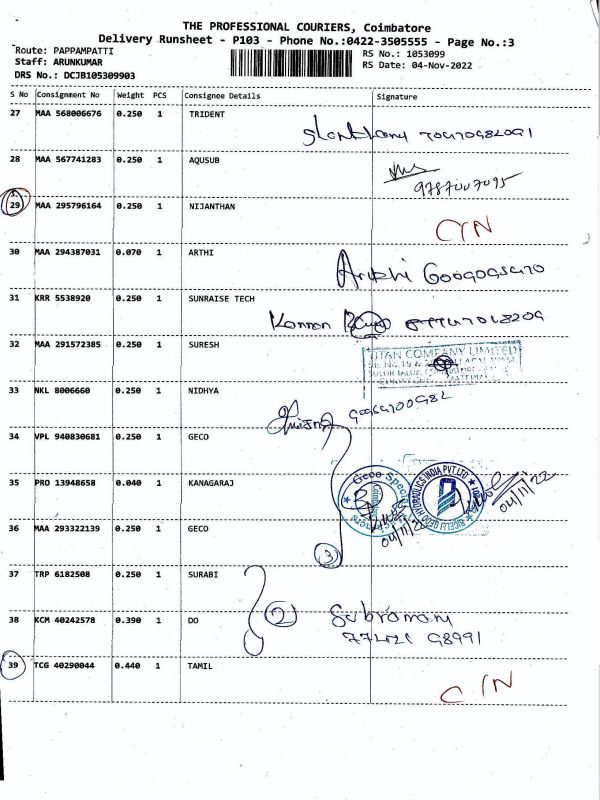 THE PROFESSIONAL COURIERS, Coimbatore
Delivery Runsheet - P103 - Phone No.:0422-3505555 - Page No.:3
Route: PAPPAMPATTI
RS No.: 1053099
Staff: ARUNKUMAR
RS Date: 04-Nov-2022
DRS No.: DCJB105309903
S No Consignment No Weight PCS Consignee Details Signature
27 MAA 568006676 0.250 1 TRIDENT
28 MAA 567741283 0.250 1 AQUSUB
9787007095
29 MAA 295796164 0.250 1 NIJANTHAN
30 MAA 294387031 0.070 1 ARTHI
31 KRR 5538920 0.250 1 SUNRAISE TECH
32 MAA 291572385 0.250 1 SURESH
TITAN COMPANY LIMITED
33 NKL 8006660 0.250 1 NIDHYA
34 VPL 940830681 0.250 1 GECO
35 PRO 13948658 0.040 1 KANAGARAJ
04/11/22
36 MAA 293322139 0.250 1 GECO
3
37 TRP 6182508 0.250 1 SURABI
38 KCM 40242578 0.390 1 DO
2 Subramany
39 TCG 40290044 0.440 1 TAMIL